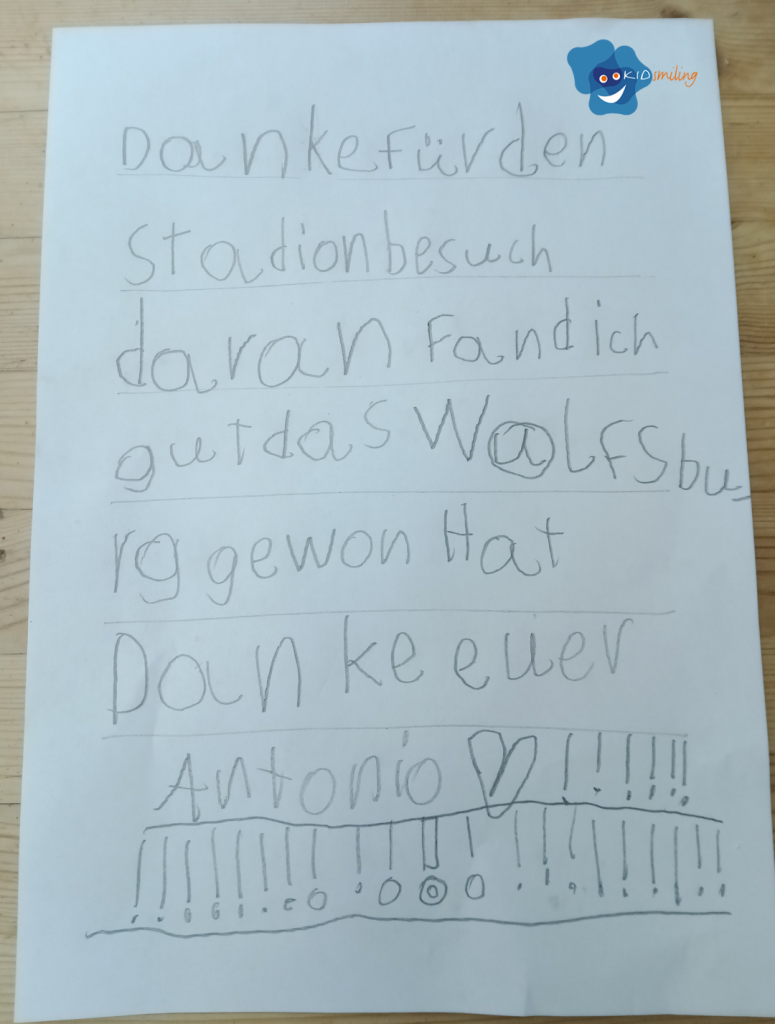 KIDsmiling
Danke für den
Stadionbesuch
daran Fand ich
gut das WalFSbu-
rg gewon Hat
Danke euer
Antonio ♡ !!!!!!
!!!!!!!!!!!!!!!!!!!!!!